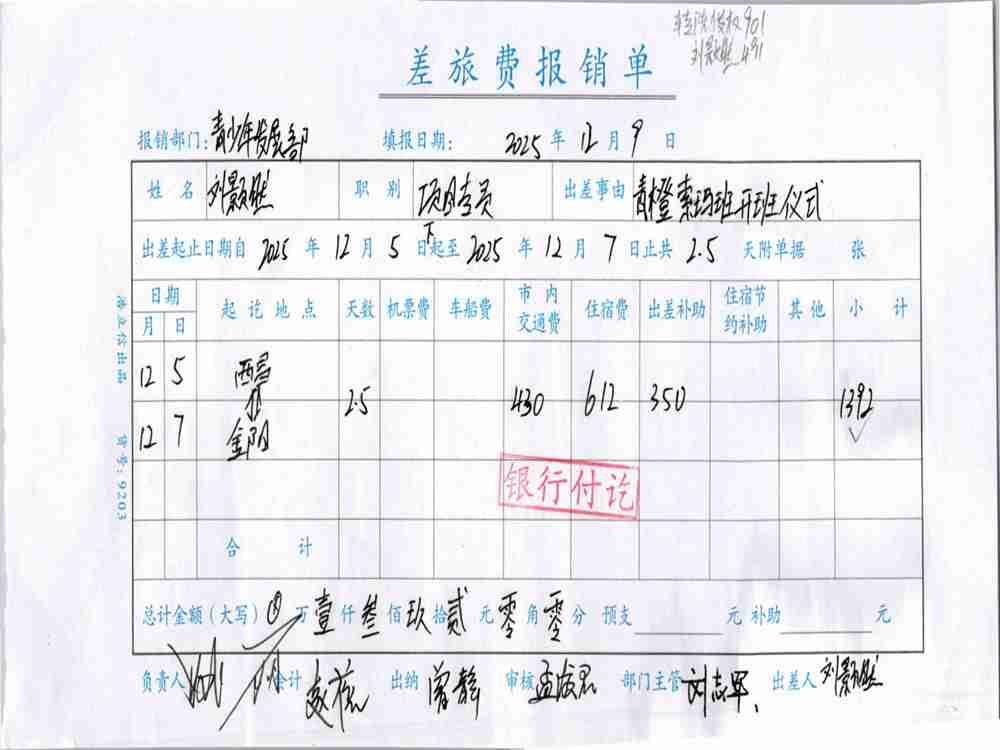 901
刘颢然 491
差旅费报销单
报销部门: 青少年发展部 填报日期: 2025 年 12 月 9 日
姓名 刘颢然 职别 项目专员 出差事由 青橙索玛班开班仪式
出差起止日期自 2025 年 12 月 5 日下起至 2025 年 12 月 7 日止共 2.5 天附单据 张
日期 起讫地点 天数 机票费 车船费 市内交通费 住宿费 出差补助 住宿节约补助 其他 小计
月 日
12 5 西昌
2.5 430 612 350 1392
12 7 金阳
银行付讫
合计
总计金额(大写) 万 壹 仟 叁 佰 玖 拾 贰 元 零 角 零 分 预支 元 补助 元
负责人 会计 出纳 曾静 审核 部门主管 刘志军 出差人 刘颢然
货号: 9203